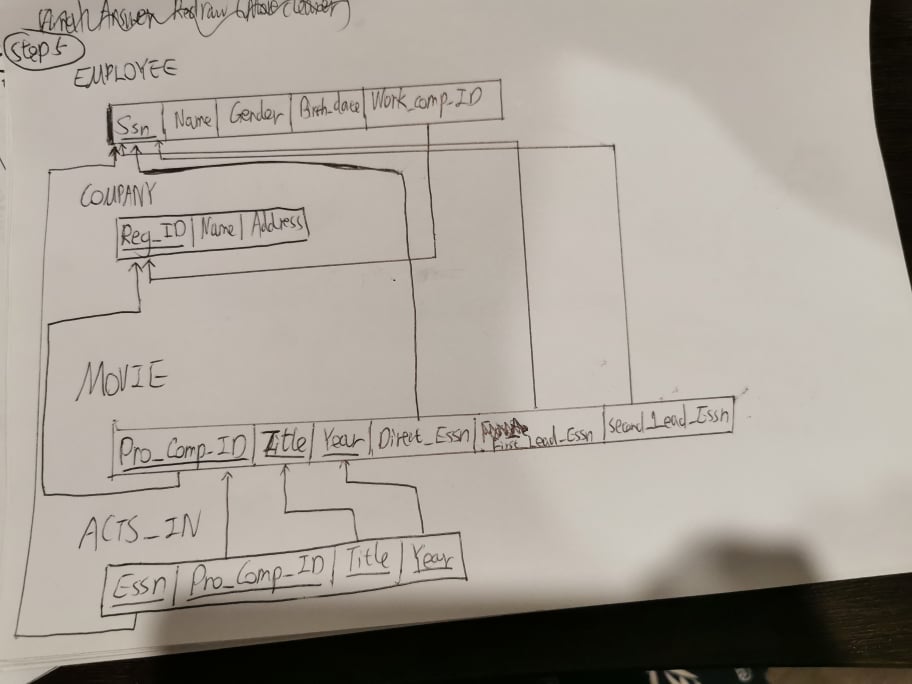 Answer Redraw
Step 5
EMPLOYEE
Ssn Name Gender Birth_date Work_comp_ID
COMPANY
Reg_ID Name Address
MOVIE
Pro_Comp_ID Title Year Direct_Essn First_Lead_Essn second_Lead_Essn
ACTS_IN
Essn Pro_Comp_ID Title Year